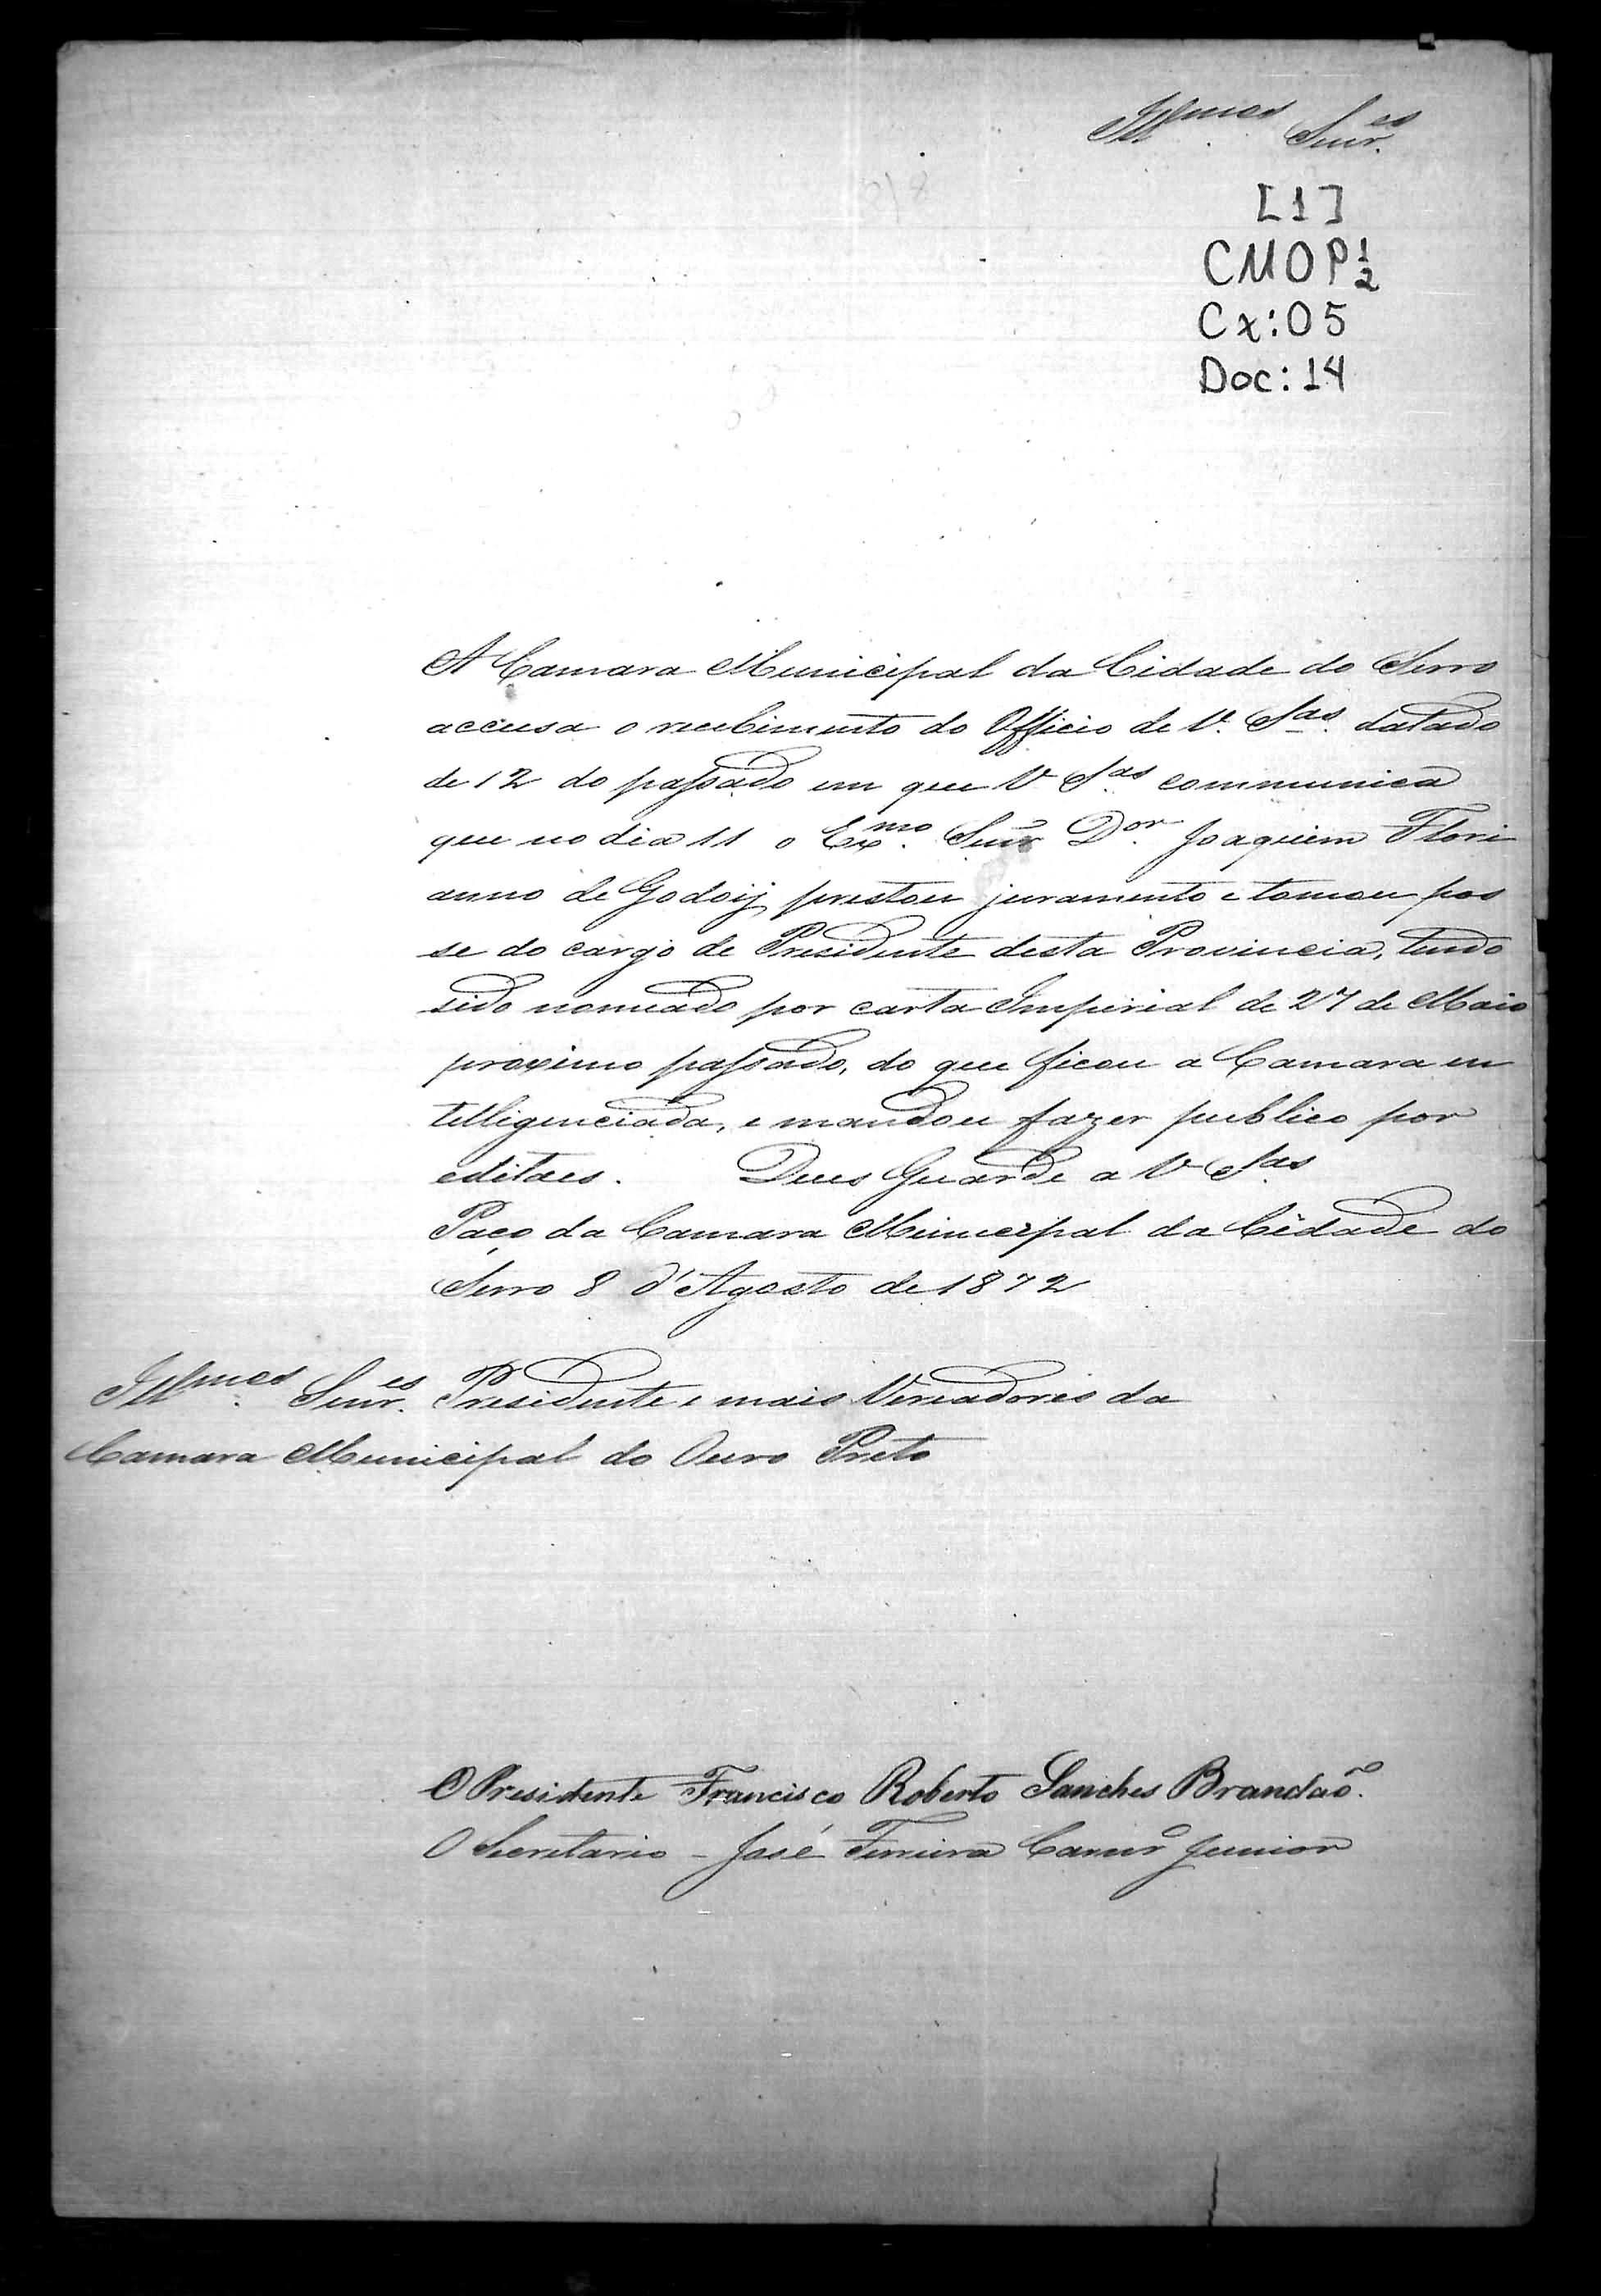 Illmos. Snr.es
[1]
CMOP 1/2
Cx: 05
Doc: 14
A Camara Municipal da Cidade do Serro
accusa o recebimento do Officio de V. Sas. datado
de 12 do passado em que V Sas. communica
que no dia 11 o Exmo. Senr Dor. Joaquim Flori
anno de Godoij prestou juramento e tomou pos
se do cargo de Presidente desta Provincia, tendo
sido nomeado por carta Imperial de 27 de Maio
proximo passado, do que ficou a Camara in
telligenciada, e mandou fazer publico por
editaes. Deus Guarde a V Sas.
Paço da Camara Municipal da Cidade do
Serro 8 d'Agosto de 1872
Illmos. Snr.es Presidente e mais Vereadores da
Camara Municipal do Ouro Preto
O Presidente Francisco Roberto Sanches Brandão.
O Secretario - José Ferreira Junior